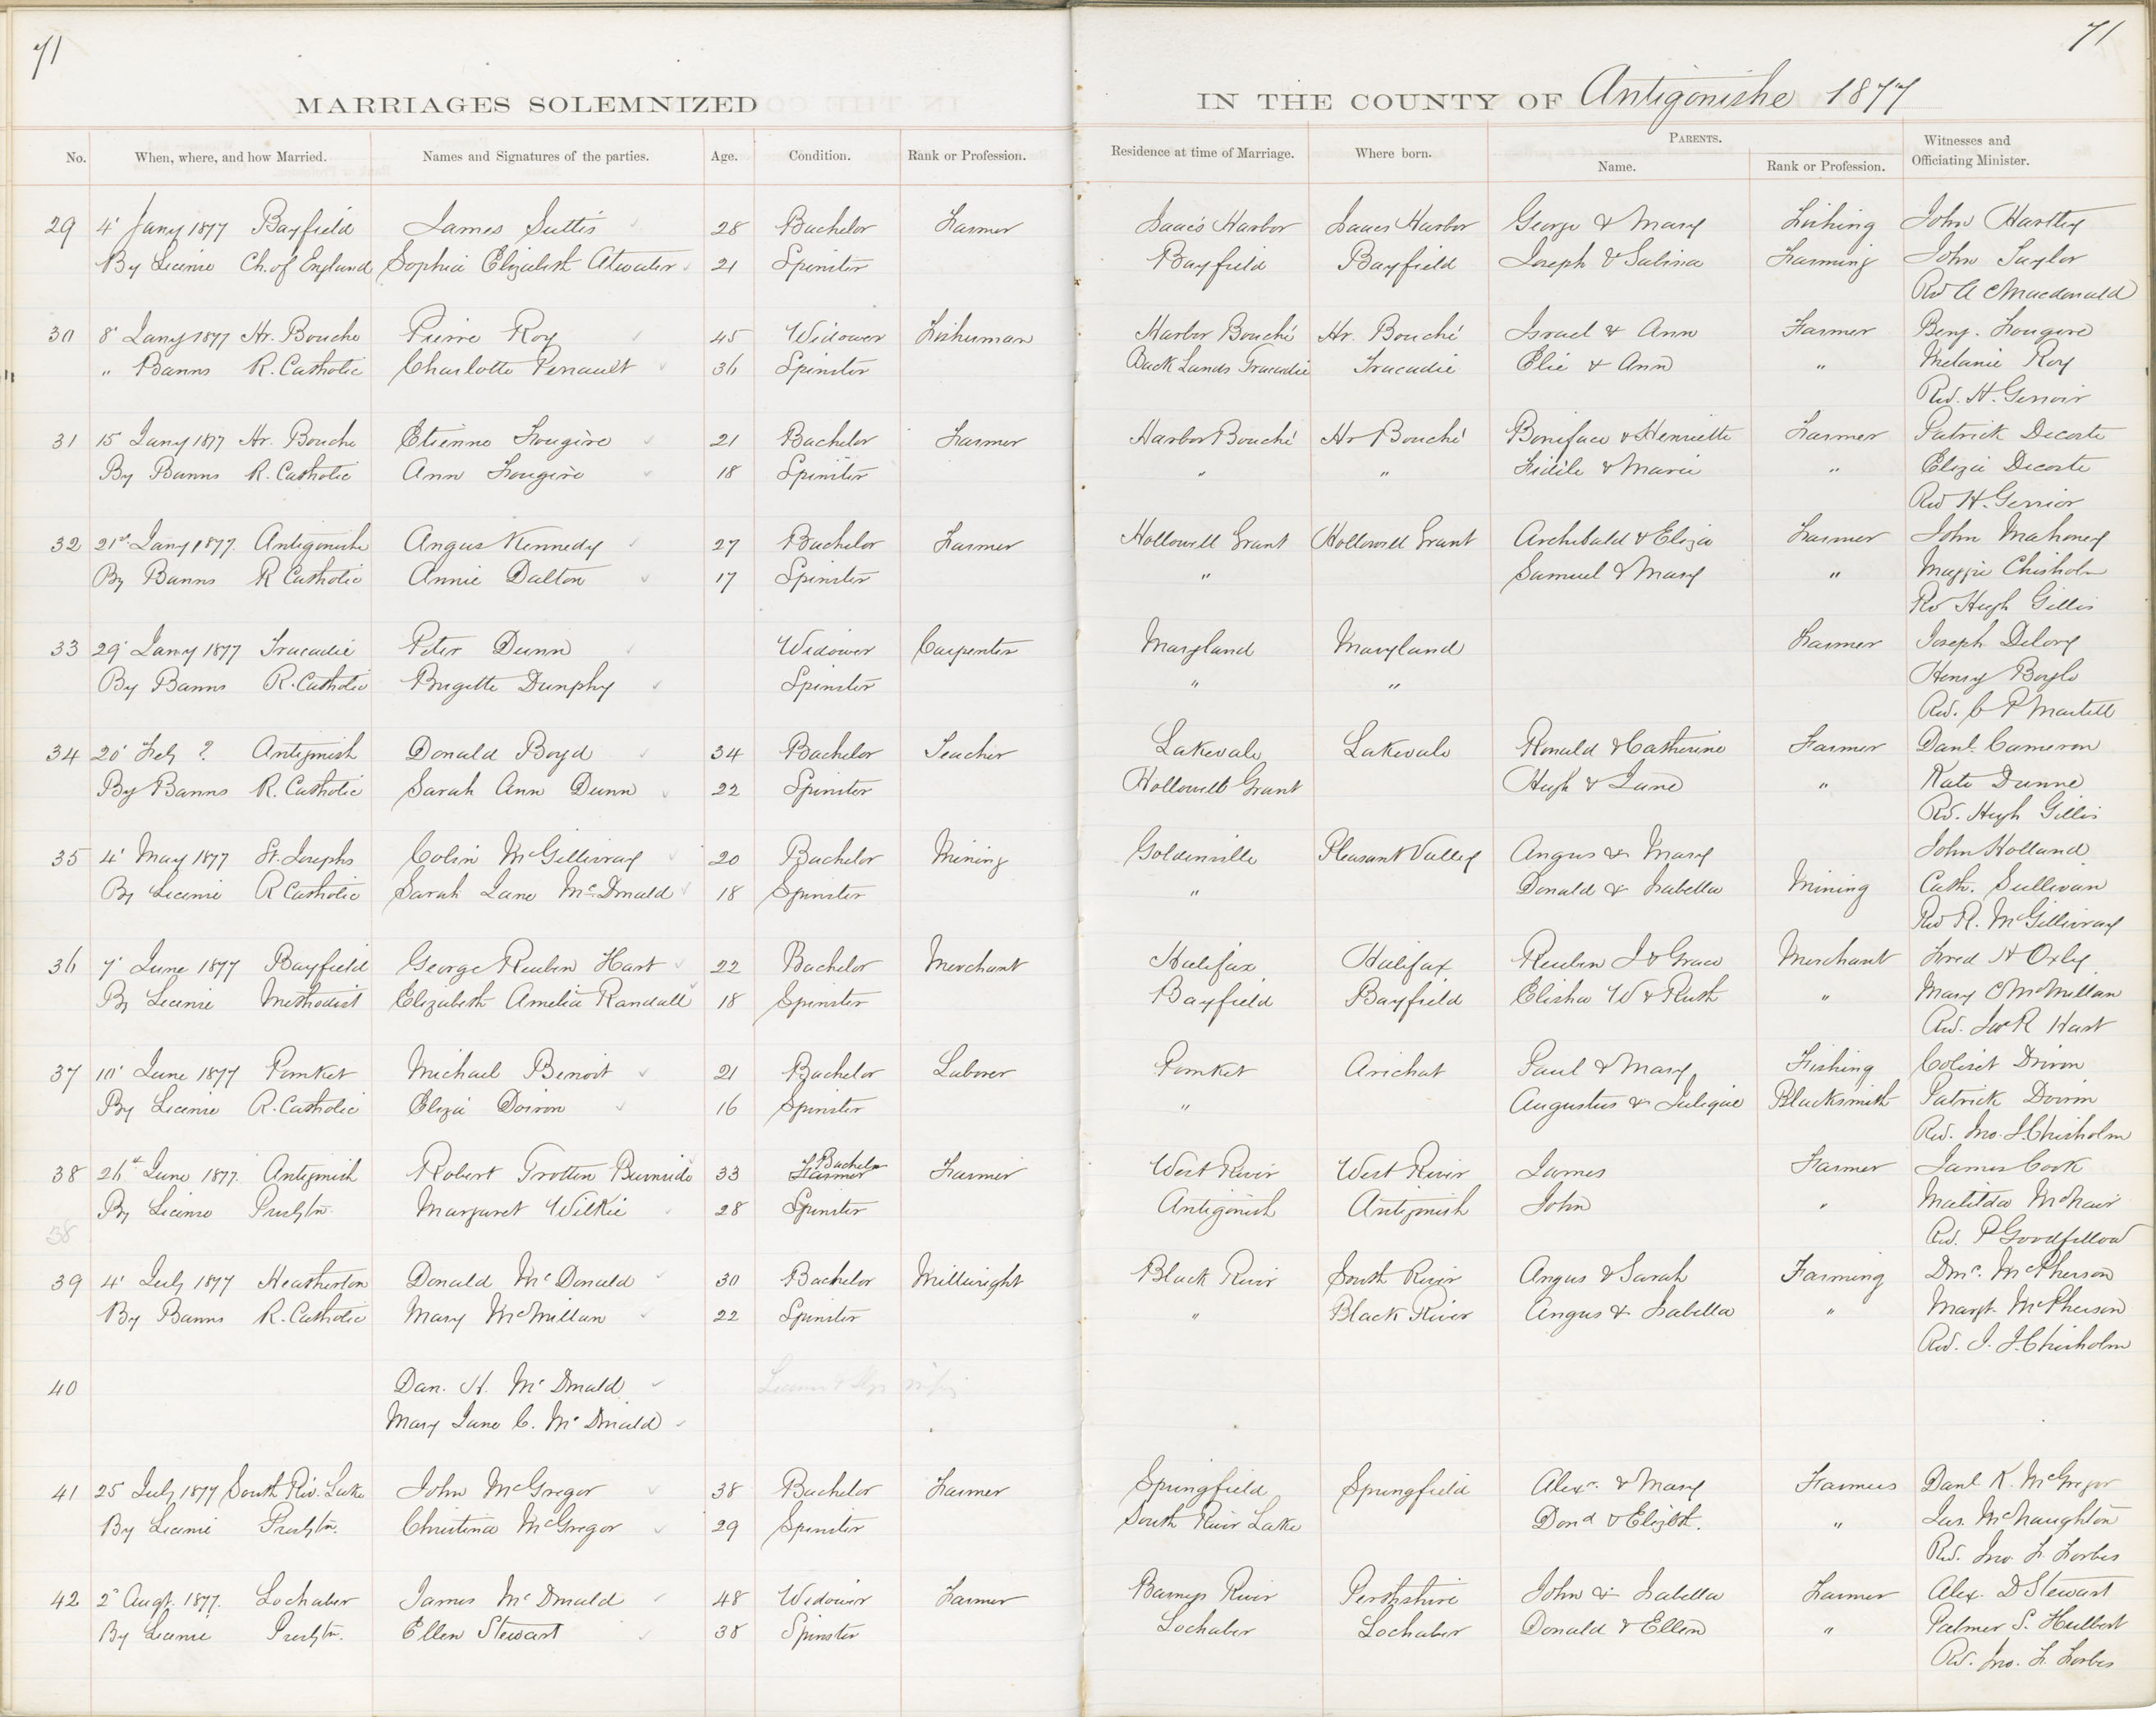 71
71
MARRIAGES SOLEMNIZED
IN THE COUNTY OF Antigonishe 1877
No. When, where, and how Married. Names and Signatures of the parties. Age. Condition. Rank or Profession. Residence at time of Marriage. Where born. PARENTS. Name. Rank or Profession. Witnesses and Officiating Minister.
29 4' Jany 1877 Bayfield James Suttis 28 Bachelor Farmer Isaac's Harbor Isaacs Harbor George & Mary Fishing John Hartley
By License Ch. of England Sophia Elizabeth Atwater 21 Spinster Bayfield Bayfield Joseph & Salina Farming John Taylor
Rev A C Macdonald
30 8' Jany 1877 Hr. Bouche Pierre Roy 45 Widower Fisherman Harbor Bouché Hr. Bouché Israel & Ann Farmer Benj. Fougere
" Banns R. Catholic Charlotte Penault 36 Spinster Back Lands Tracadie Tracadie Elie & Ann " Melanie Roy
Rev. H. Gerroir
31 15 Jany 1877 Hr. Bouche Etienne Fougère 21 Bachelor Farmer Harbor Bouché Hr Bouché Boniface & Henriette Farmer Patrick Decoste
By Banns R. Catholic Ann Fougère 18 Spinster " " Fidile & Marie " Eliza Decoste
Rev H. Gerrior
32 21st Jany 1877. Antigonishe Angus Kennedy 27 Bachelor Farmer Hollowell Grant Hollowell Grant Archibald & Eliza Farmer John Mahoney
By Banns R Catholic Annie Dalton 17 Spinster " Samuel & Mary " Maggie Chisholm
Rev Hugh Gillis
33 29' Jany 1877 Tracadie Peter Dunn Widower Carpenter Maryland Maryland Farmer Joseph Delory
By Banns R. Catholic Brigette Dunphy Spinster " " Henry Boyle
Rev. C P Martell
34 20' Feby ? Antigonish Donald Boyd 34 Bachelor Teacher Lakevale Lakevale Ronald & Catherine Farmer Danl. Cameron
By Banns R. Catholic Sarah Ann Dunn 22 Spinster Hollowell Grant Hugh & Jane " Kate Dunne
Rev. Hugh Gillis
35 4' May 1877 St. Josephs Colin McGillivray 20 Bachelor Mining Goldenville Pleasant Valley Angus & Mary John Holland
By License R Catholic Sarah Jane McDonald 18 Spinster " Donald & Isabella Mining Cath. Sullivan
Rev R. McGillivray
36 7' June 1877 Bayfield George Reuben Hart 22 Bachelor Merchant Halifax Halifax Reuben I & Grace Merchant Fred H Oxley
By License Methodist Elizabeth Amelia Randall 18 Spinster Bayfield Bayfield Elisha W & Ruth " Mary C McMillan
Rev. Jos R Hart
37 10' June 1877 Pomket Michael Benoit 21 Bachelor Laborer Pomket Arichat Paul & Mary Fishing Doiron
By License R. Catholic Eliza Doiron 16 Spinster " Augustus & Blacksmith Patrick Doiron
Rev. Jno. J Chisholm
38 26th June 1877. Antigonish Robert Trotten Burnside 33 Bachelor Farmer Farmer West River West River James Farmer James Cook
By License Presbtn. Margaret Wilkie 28 Spinster Antigonish Antigonish John " Matilda McNair
38
Rev. P Goodfellow
39 4' July 1877 Heatherton Donald McDonald 30 Bachelor Millwright Black River South River Angus & Sarah Farming McPherson
By Banns R. Catholic Mary McMillan 22 Spinster " Black River Angus & Isabella " Margt. McPherson
Rev. J. J. Chisholm
40 Dan. H. McDonald
Mary Jane C. McDonald
41 25 July 1877 South Riv. Lake John McGregor 38 Bachelor Farmer Springfield Springfield Alexr. & Mary Farmers Danl K. McGregor
By License Presbtn. Christina McGregor 29 Spinster South River Lake Dond & Elizbth. " Jas. McNaughton
Rev. Jno F. Forbes
42 2d Augt. 1877. Lochaber James McDonald 48 Widower Farmer Barneys River Perthshire John & Isabella Farmer Alex. D Stewart
By License Presbtn. Ellen Stewart 38 Spinster Lochaber Lochaber Donald & Ellen " Palmer S. Hulbert
Rev. Jno. F. Forbes